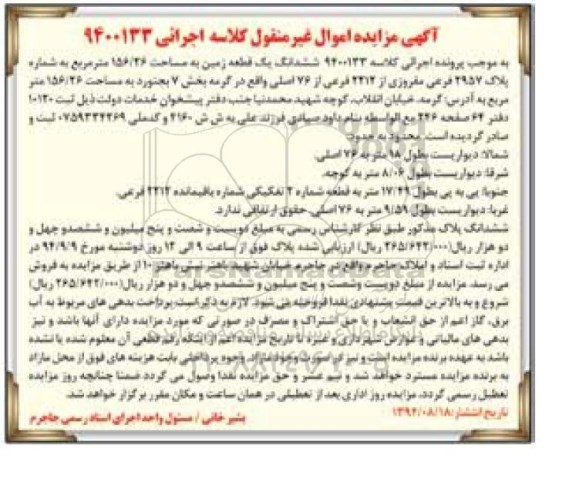 آگهی مزایده اموال غیرمنقول کلاسه اجرائی ۹۴۰۰۱۳۳
به موجب پرونده اجرائی کلاسه ۹۴۰۰۱۳۳ ششدانگ یک قطعه زمین به مساحت ۱۵۶/۲۶ مترمربع به شماره
پلاک ۲۹۵۷ فرعی مفروزی از ۲۲۱۲ فرعی از ۷۶ اصلی واقع در گرمه بخش ۷ بجنورد به مساحت ۱۵۶/۲۶ متر
مربع به آدرس: گرمه، خیابان انقلاب، کوچه شهید محمدنیا جنب دفتر پیشخوان خدمات دولت ذیل ثبت ۱۰۱۲۰
دفتر ۶۴ صفحه ۲۴۶ مع الواسطه بنام داود صیادی فرزند علی به ش ش ۲۱۶۰ و کدملی ۰۷۵۹۳۳۴۲۶۹ ثبت و
صادر گردیده است. محدود به حدود:
شمالا: دیواریست بطول ۱۸ متر به ۷۶ اصلی.
شرقا: دیواریست بطول ۸/۰۶ متر به کوچه.
جنوبا: پی به پی بطول ۱۷/۴۹ متر به قطعه شماره ۲ تفکیکی شماره باقیمانده ۲۲۱۲ فرعی.
غربا: دیواریست بطول ۹/۵۹ متر به ۷۶ اصلی. حقوق ارتفاقی ندارد.
ششدانگ پلاک مذکور طبق نظر کارشناس رسمی به مبلغ دویست و شصت و پنج میلیون و ششصدو چهل و
دو هزار ریال (۲۶۵/۶۴۲/۰۰۰ ریال) ارزیابی شده پلاک فوق از ساعت ۹ الی ۱۲ روز دوشنبه مورخ ۹۴/۹/۹ در
اداره ثبت اسناد و املاک جاجرم واقع در جاجرم خیابان شهید باهنر نبش باهنر ۱۰ از طریق مزایده به فروش
می رسد. مزایده از مبلغ دویست وشصت و پنج میلیون و ششصدو چهل و دو هزار ریال (۲۶۵/۶۴۲/۰۰۰ ریال)
شروع و به بالاترین قیمت پیشنهادی نقدا فروخته می شود. لازم به ذکر است پرداخت بدهی های مربوط به آب
برق، گاز اعم از حق انشعاب و یا حق اشتراک و مصرف در صورتی که مورد مزایده دارای آنها باشد و نیز
بدهی های مالیاتی و عوارض شهرداری و غیره تا تاریخ مزایده اعم از اینکه رقم قطعی آن معلوم شده یا نشده
باشد به عهده برنده مزایده است و نیز در صورت وجود مازاد، وجوه پرداختی بابت هزینه های فوق از محل مازاد
به برنده مزایده مسترد خواهد شد و نیم عشر و حق مزایده نقدا وصول می گردد ضمنا چنانچه روز مزایده
تعطیل رسمی گردد، مزایده روز اداری بعد از تعطیلی در همان ساعت و مکان مقرر برگزار خواهد شد.
تاریخ انتشار: ۱۳۹۴/۰۸/۱۸
بشیر خانی / مسئول واحد اجرای اسناد رسمی جاجرم